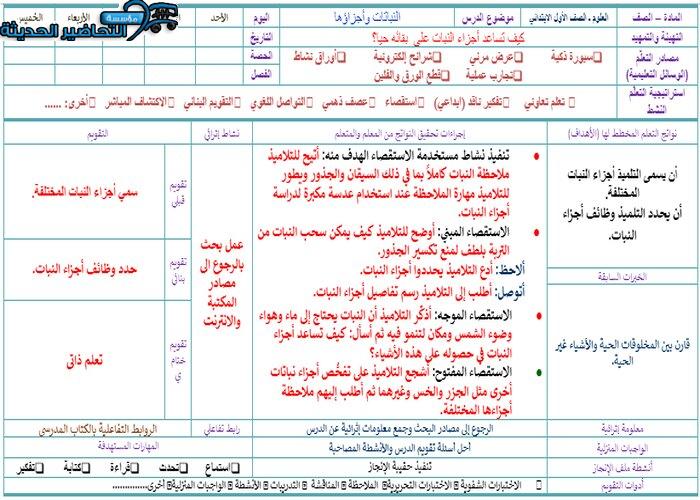 المادة – الصف
العلوم ـ الصف الأول الابتدائي
موضوع الدرس
النباتات وأجزاؤها
اليوم
الأحد
الأربعاء
الخميس
مؤسسة التحاضير الحديثة
التهيئة والتمهيد
كيف تساعد أجزاء النبات على بقائه حيا؟
التاريخ
مصادر التعلم
(الوسائل التعليمية)
سبورة ذكية
عرض مرئي
شرائح إلكترونية
أوراق نشاط
تجارب عملية
قطع الورق والفلين
الحصة
الفصل
استراتيجية التعلم
النشط
تعلم تعاوني
تفكير ناقد (ابداعي)
استقصاء
عصف ذهني
التواصل اللغوي
التقويم البنائي
الاكتشاف المباشر
أخرى: ......
نواتج التعلم المخطط لها (الأهداف)
إجراءات تحقيق النواتج من المعلم والمتعلم
نشاط إثرائي
التقويم
أن يسمى التلميذ أجزاء النبات
المختلفة.
أن يحدد التلميذ وظائف أجزاء
النبات.
الخبرات السابقة
قارن بين المخلوقات الحية والأشياء غير
الحية.
تنفيذ نشاط مستخدمة الاستقصاء الهدف منه: أتيح للتلاميذ
ملاحظة النبات كاملاً بما في ذلك السيقان والجذور ويطور
للتلاميذ مهارة الملاحظة عند استخدام عدسة مكبرة لدراسة
أجزاء النبات.
الاستقصاء المبني: أوضح للتلاميذ كيف يمكن سحب النبات من
التربة بلطف لمنع تكسير الجذور.
ألاحظ: أدع التلاميذ يحددوا أجزاء النبات.
أتوصل: أطلب إلى التلاميذ رسم تفاصيل أجزاء النبات.
الاستقصاء الموجه: أذكّر التلاميذ أن النبات يحتاج إلى ماء وهواء
وضوء الشمس ومكان لتنمو فيه ثم أسأل: كيف تساعد أجزاء
النبات في حصوله على هذه الأشياء؟
الاستقصاء المفتوح: أشجع التلاميذ على تفحُّص أجزاء نباتات
أخرى مثل الجزر والخس وغيرهما ثم أطلب إليهم ملاحظة
أجزاءها المختلفة.
عمل بحث
بالرجوع الى
مصادر
المكتبة
والانترنت
تقويم
قبلي
سمي أجزاء النبات المختلفة.
تقويم
بنائي
حدد وظائف أجزاء النبات.
تقويم
ختام
ي
تعلم ذاتى
معلومة إثرائية
الرجوع إلى مصادر البحث وجمع معلومات إثرائية عن الدرس
رابط تفاعلي
الروابط التفاعلية بالكتاب المدرسى
الواجبات المنزلية
أحل أسئلة تقويم الدرس والأنشطة المصاحبة
المهارات المستهدفة
أنشطة ملف الإنجاز
تنفيذ حقيبة الإنجاز
استماع
تحدث
قراءة
كتابة
تفكير
أدوات التقويم
الاختبارات الشفوية
الاختبارات التحريرية
الملاحظة
المناقشة
التدريبات
الأنشطة
الواجبات المنزلية
أخرى...............